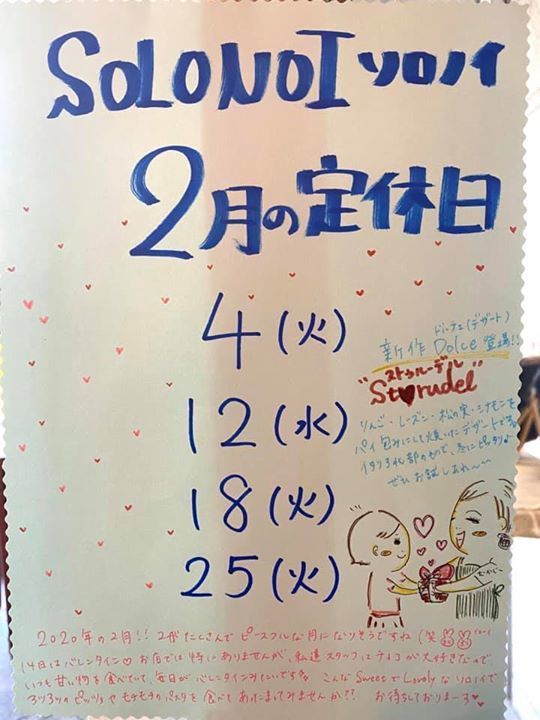 SOLONOI ソロノイ
2月の定休日
4(火)
12(水)
18(火)
25(火)
ドルチェ(デザート)
新作 Dolce 登場!!
ストゥルーデル
"Strudel"
りんご・レーズン・松の実・シナモンを
パイ包みにして焼いたデザートです。
イタリア北部のもので、冬にピッタリ♪
ぜひお試しあれ〜
2020年の2月!! 2がたくさんで ピースフルな月になりそうですね(笑
14日はバレンタイン♡ お店では特にありませんが、私達スタッフはチョコが大好きなので、
いつも甘い物を食べていて、毎日がバレンタインみたいです。こんなSweetでLovelyなソロノイで
のピッツァやモチモチのパスタを食べてあたたまってみませんか?? お待ちしておりまーす♥